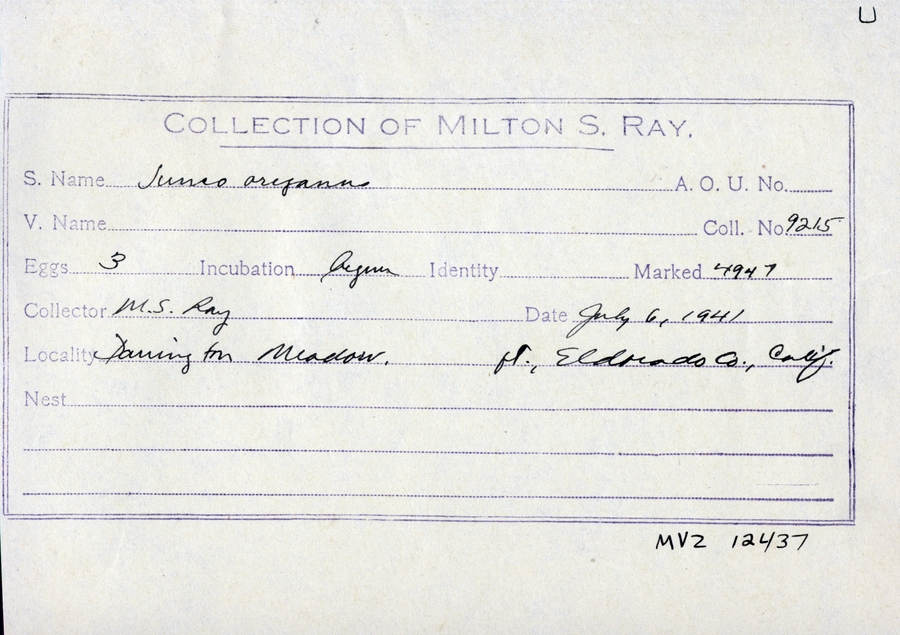 U
COLLECTION OF MILTON S. RAY.
S. Name Junco oreganus A. O. U. No.
V. Name Coll. No 9215
Eggs 3 Incubation begun Identity Marked 4947
Collector M.S. Ray Date July 6, 1941
Locality Meadow. ft., Eldorado Co., Calif.
Nest
MVZ 12437